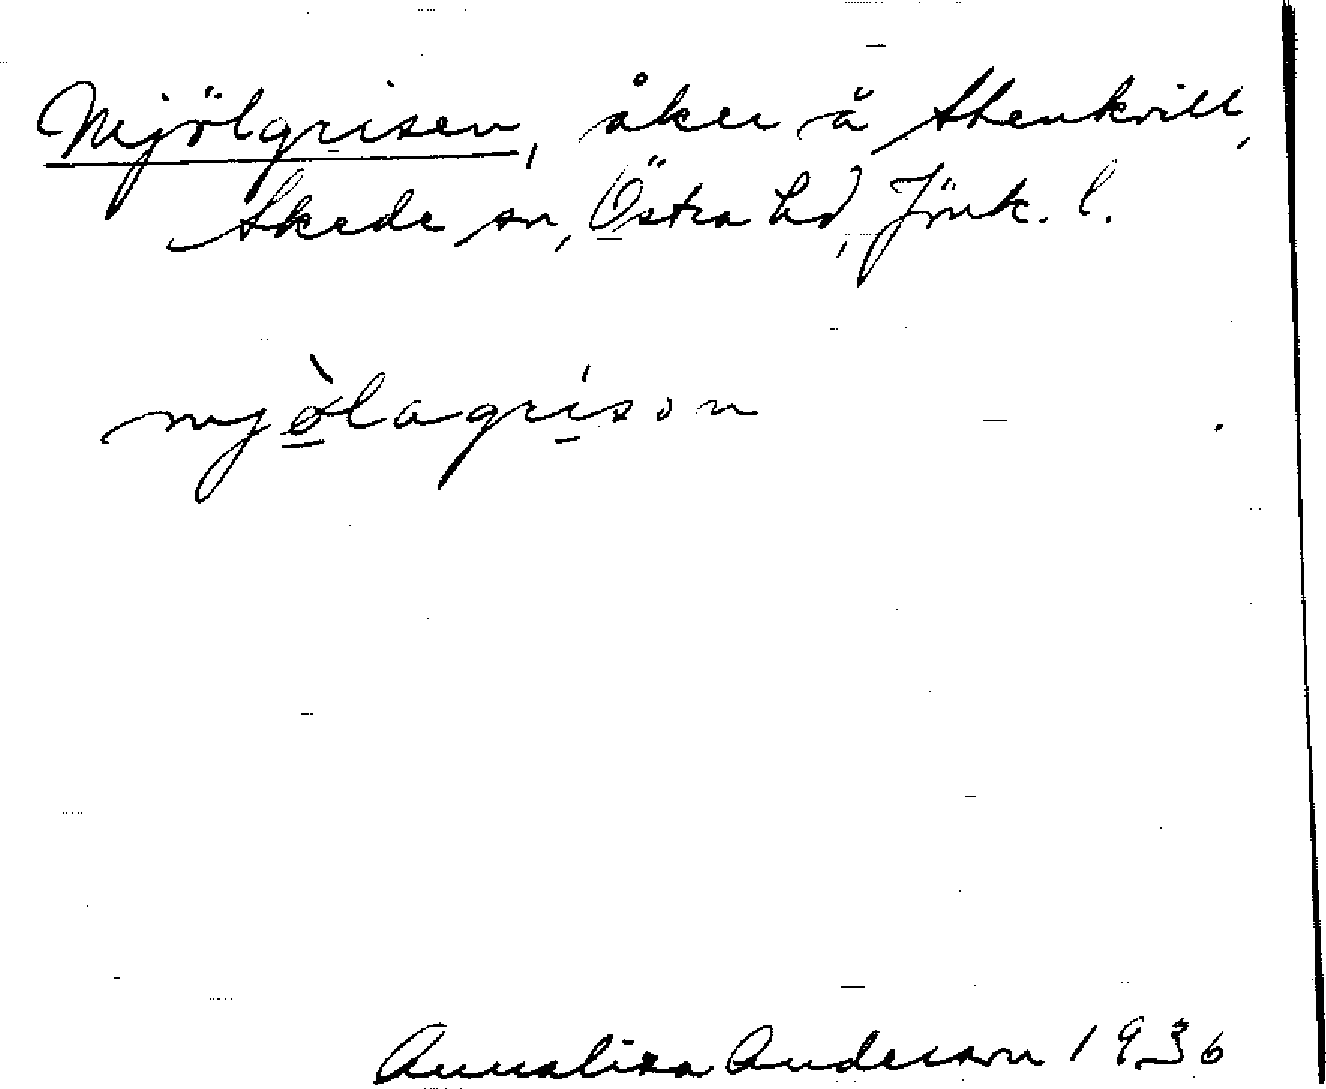 Mjölgrisen, åker å Stenkvill,
Skede sn, Östra hd, Jönk. l.
mjö̀lagrisən
Annalisa Anderson 1936